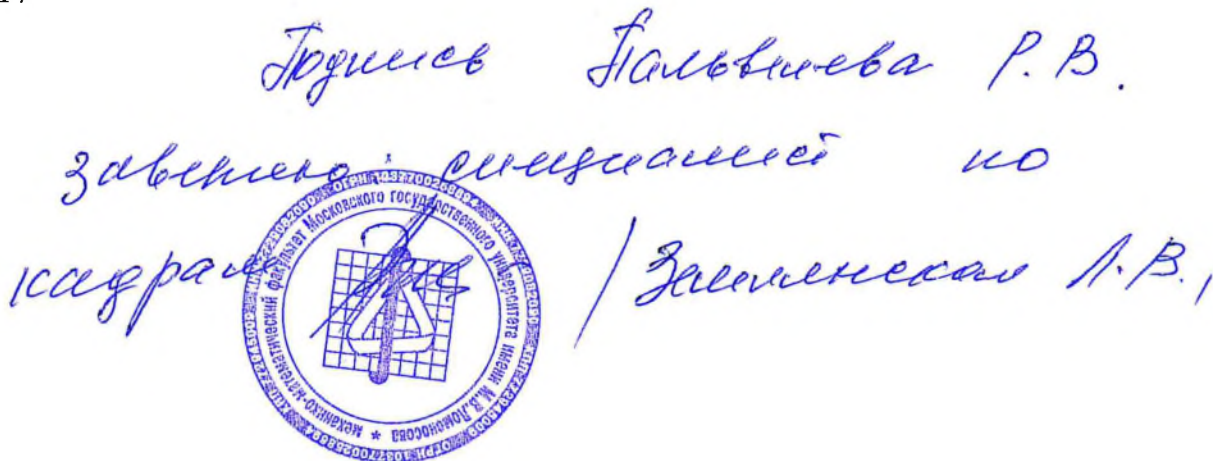 Подпись Пальвелева Р. В.
заверяю: специалист по
кадрам / Землянская Л. В. /
механико-математический факультет Московского государственного университета имени М.В.Ломоносова *